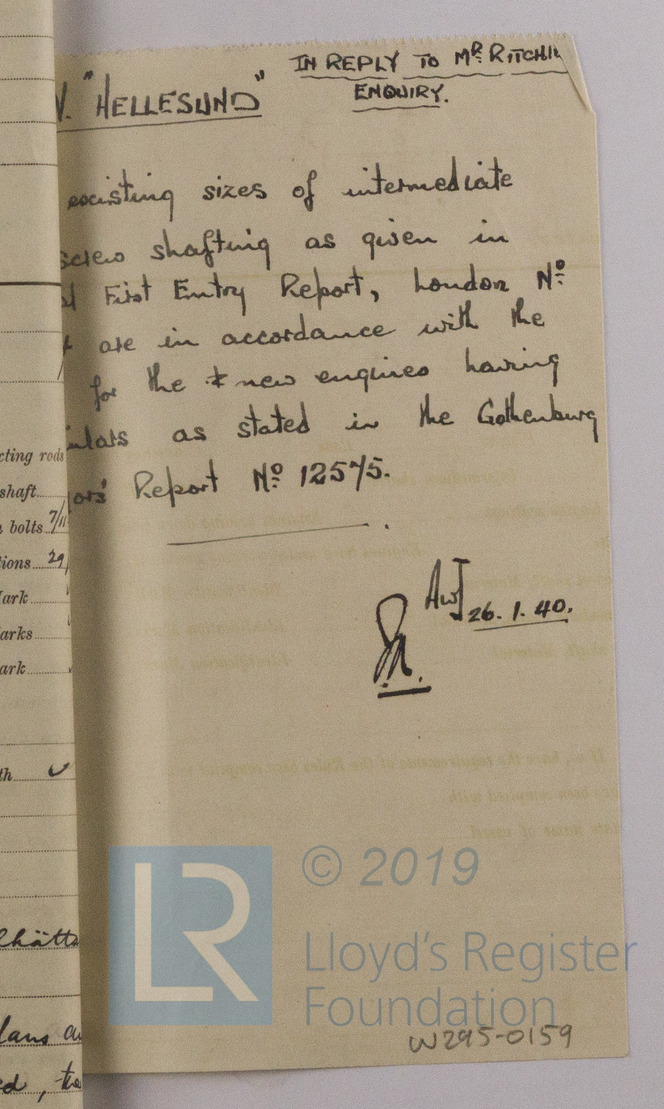 IN REPLY TO MR RITCHIE
ENQUIRY.
V. "HELLESUND"
existing sizes of intermediate
screw shafting as given in
First Entry Report, London No
are in accordance with the
for the * new engines having
as stated in the Gothenburg
ors' Report No 12575.
AWJ 26.1.40.
cting rods
shaft
bolts 7/11
tions 29
Mark
arks
ark
th
© 2019
LR
Lloyd's Register
Foundation
W295-0159